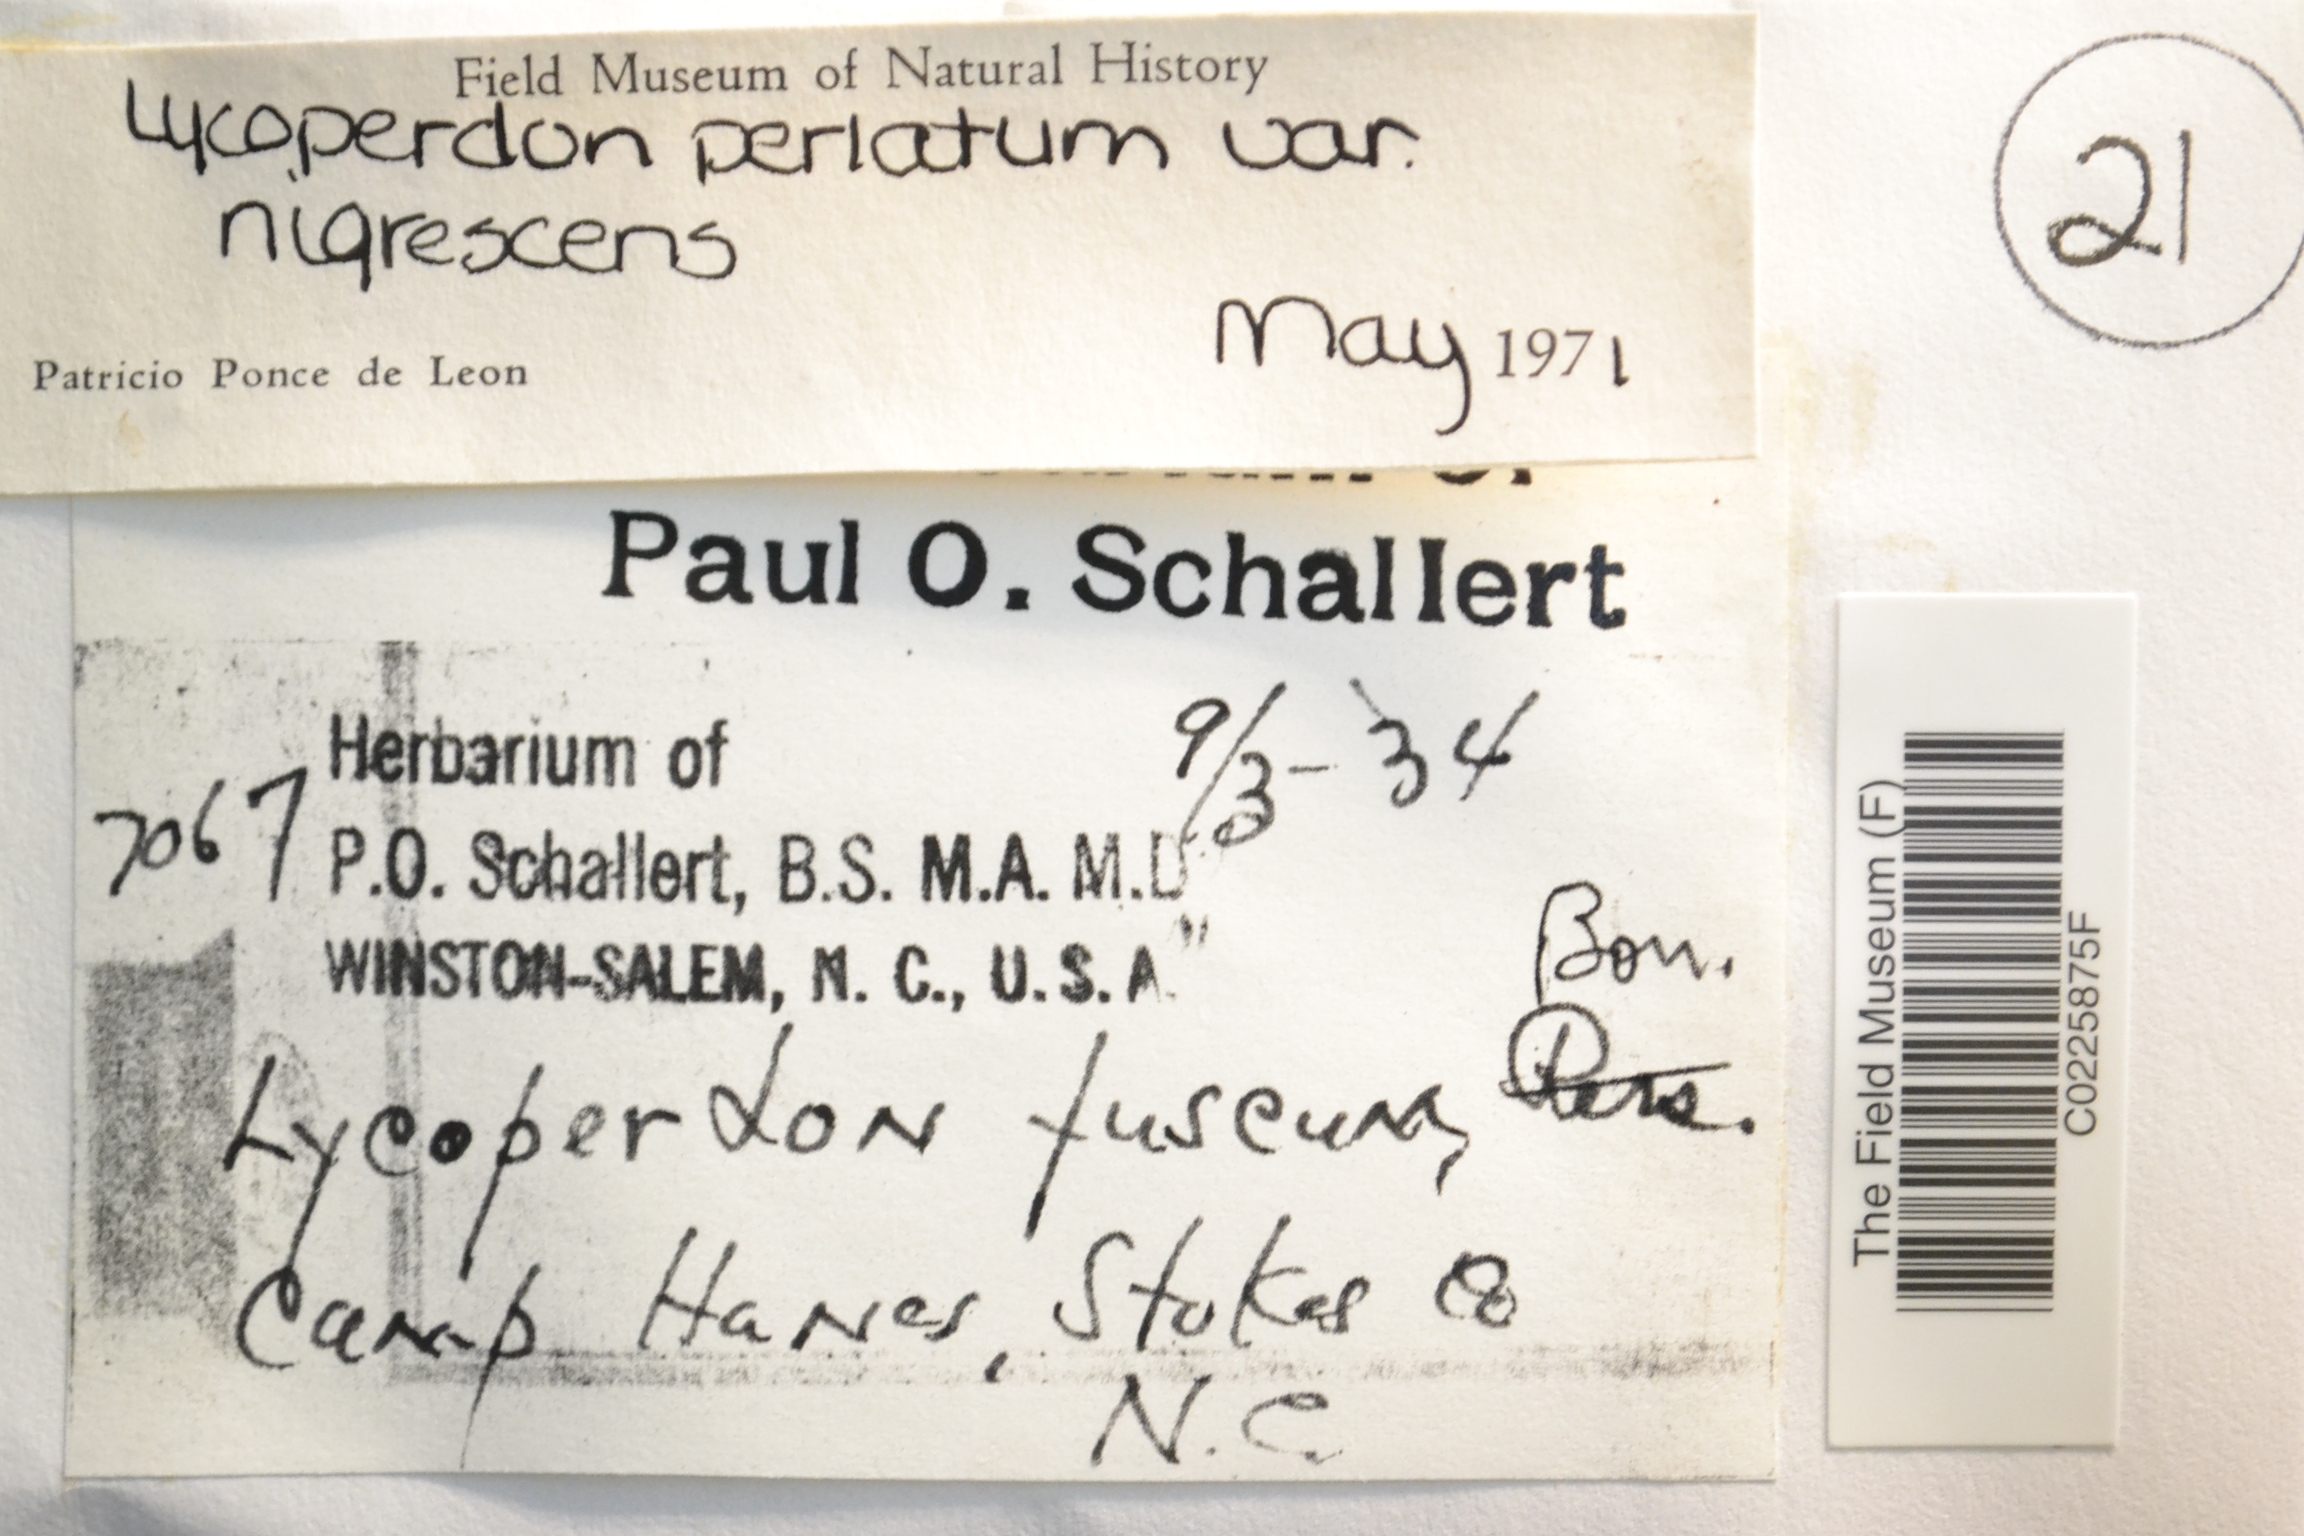 Field Museum of Natural History
Lycoperdon perlatum var.
nigrescens
May 1971
Patricio Ponce de Leon
21
Paul O. Schallert
Herbarium of
9/3-34
7067
P.O. Schallert, B.S. M.A. M.D
WINSTON-SALEM, N. C., U.S.A.
Bon.
Lycoperdon fuscum, Pers.
Camp Hanes, Stokes Co
N.C.
The Field Museum (F)
C0225875F